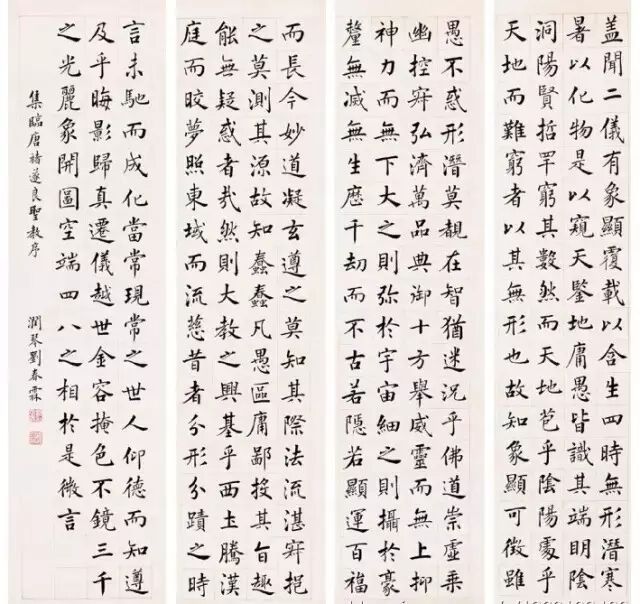 盖聞二儀有象顯覆載以含生四時無形潛寒
暑以化物是以窺天鑒地庸愚皆識其端明陰
洞陽賢哲罕窮其數然而天地苞乎陰陽處乎
天地而難窮者以其無形也故知象顯可徵雖
愚不惑形潛莫覩在智猶迷況乎佛道崇虛乗
幽控寂弘濟萬品典御十方舉威靈而無上抑
神力而無下大之則弥於宇宙細之則攝於豪
釐無滅無生歷千劫而不古若隱若顯運百福
而長今妙道凝玄遵之莫知其際法流湛寂挹
之莫測其源故知蠢蠢凡愚區庸鄙投其旨趣
能無疑惑者哉然則大教之興基乎西土騰漢
庭而皎夢照東域而流慈昔者分形分蹟之時
言未馳而成化當常現常之世人仰德而知遵
及乎晦影歸真遷儀越世金容掩色不鏡三千
之光麗象開圖空端四八之相於是微言
集臨唐褚遂良聖教序
潤琴劉春霖